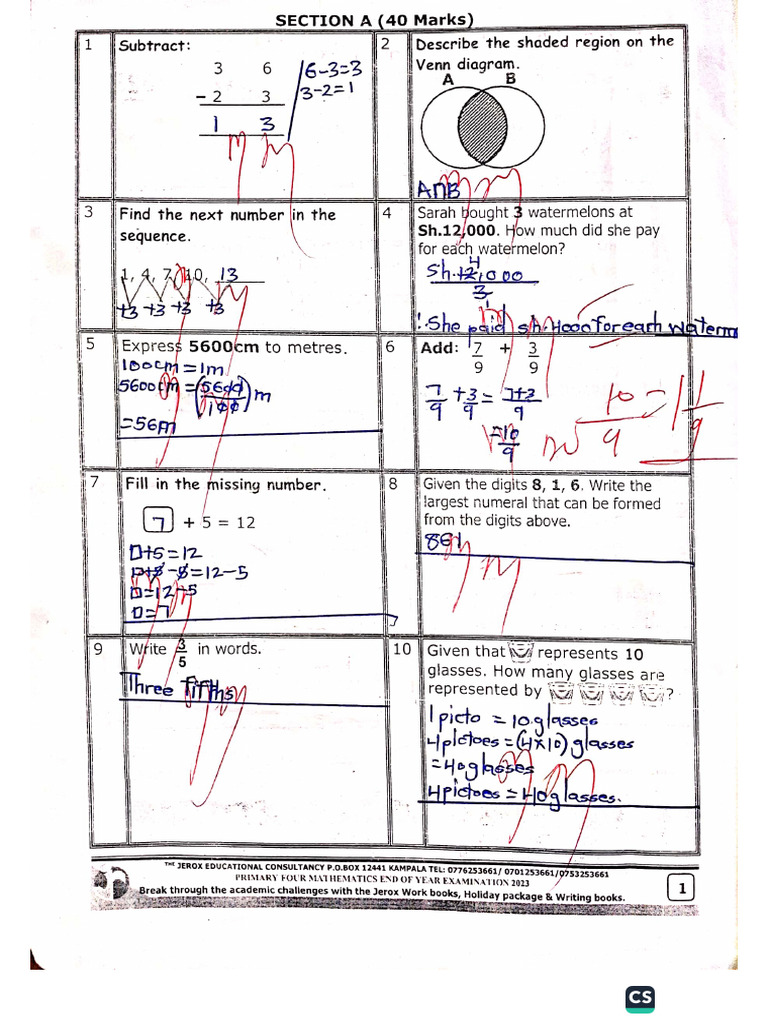 SECTION A (40 Marks)
1
Subtract:
3 6
- 2 3
1 3
6-3=3
3-2=1
2
Describe the shaded region on the
Venn diagram.
A B
A∩B
3
Find the next number in the
sequence.
1, 4, 7, 10, 13
+3 +3 +3 +3
4
Sarah bought 3 watermelons at
Sh.12,000. How much did she pay
for each watermelon?
4
Sh.12,000
3
She paid sh.4000 for each waterm
5
Express 5600cm to metres.
100cm = 1m
5600cm = (5600/100)m
= 56m
6
Add: 7/9 + 3/9
7/9 + 3/9 = 7+3/9
= 10/9
10/9 = 1 1/9
7
Fill in the missing number.
7 + 5 = 12
□+5=12
□+5-5=12-5
□=12-5
□=7
8
Given the digits 8, 1, 6. Write the
largest numeral that can be formed
from the digits above.
861
9
Write 3/5 in words.
Three fifths
10
Given that represents 10
glasses. How many glasses are
represented by ?
1 picto = 10 glasses
4 pictoes = (4×10) glasses
= 40 glasses
4 pictoes = 40 glasses.
THE JEROX EDUCATIONAL CONSULTANCY P.O.BOX 12441 KAMPALA TEL: 0776253661/ 0701253661/0753253661
PRIMARY FOUR MATHEMATICS END OF YEAR EXAMINATION 2023
Break through the academic challenges with the Jerox Work books, Holiday package & Writing books.
1
CS